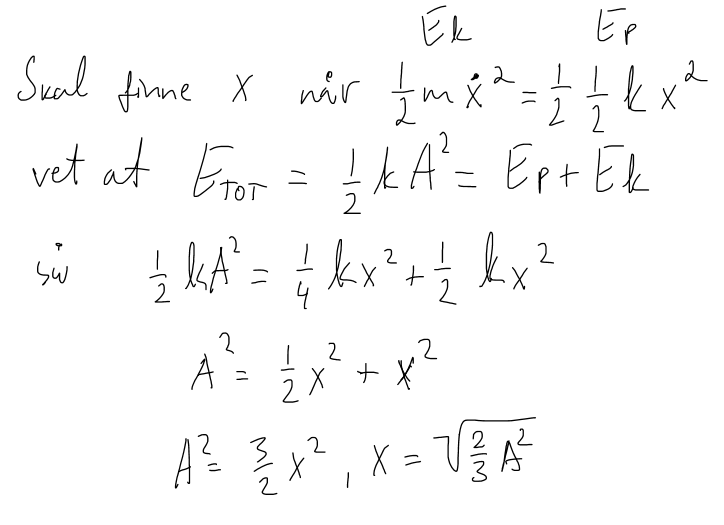 Ek Ep
Skal finne x når ½mẋ² = ½ ½ k x²
vet at E_TOT = ½kA² = Ep + Ek
så ½kA² = ¼kx² + ½kx²
A² = ½x² + x²
A² = 3/2 x², x = √(2/3 A²)